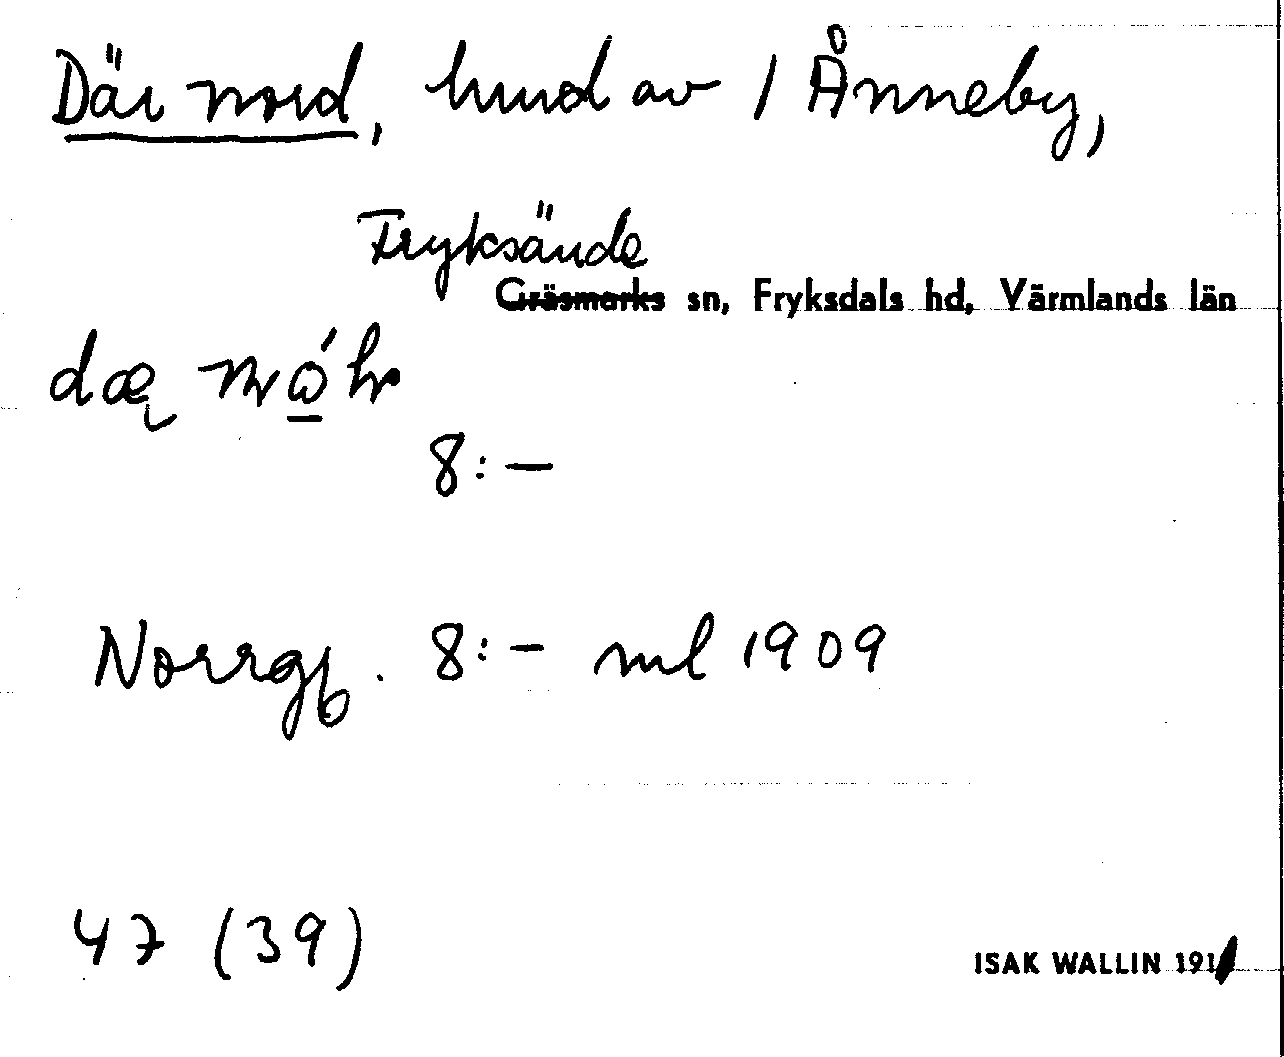 Där nord, hmd av 1 Ånneby,
Fryksände
Gräsmarks sn, Fryksdals hd, Värmlands län
8:-
Norrgb. 8:- ml 1909
47 (39)
ISAK WALLIN 191